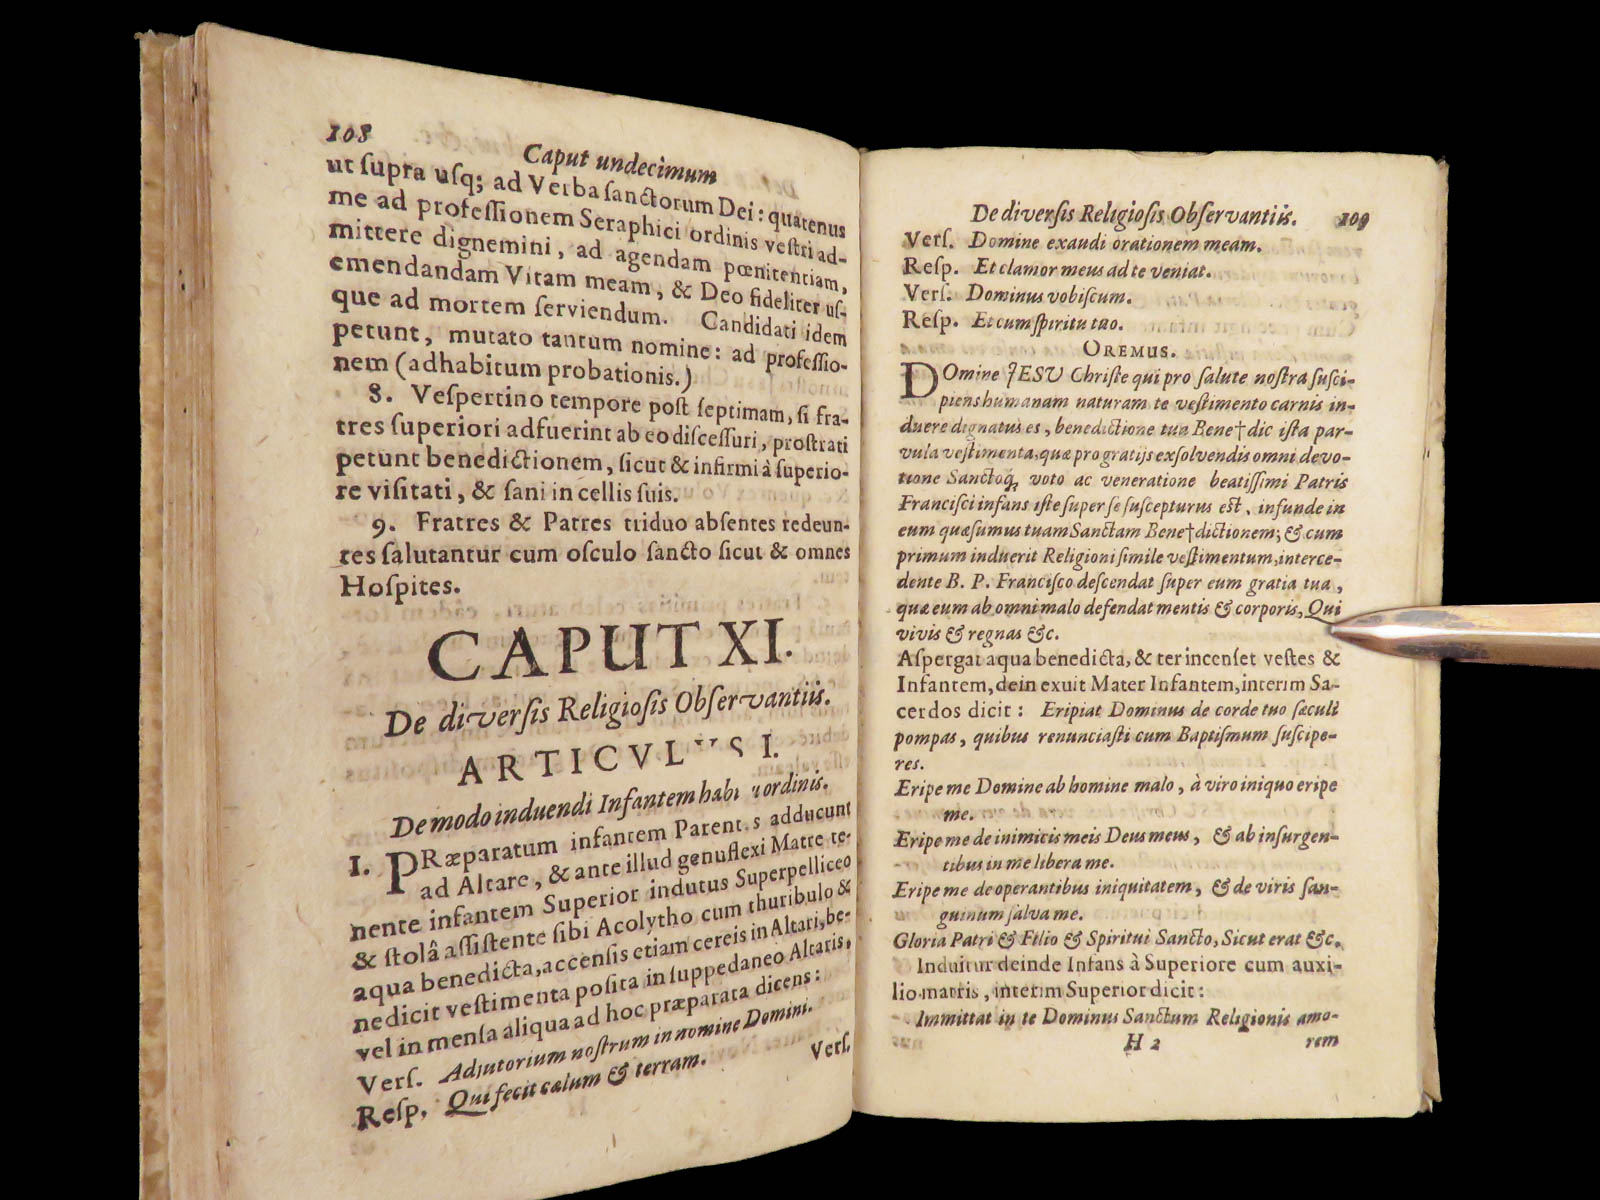 108
Caput undecimum
ut ſupra uſq; ad Verba ſanctorum Dei: quatenus
me ad profeſſionem Seraphici ordinis veſtri ad-
mittere dignemini, ad agendam pœnitentiam,
emendandam Vitam meam, & Deo fideliter uſ-
que ad mortem ſerviendum. Candidati idem
petunt, mutato tantum nomine: ad profeſſio-
nem (ad habitum probationis.)
8. Veſpertino tempore poſt ſeptimam, ſi fra-
tres ſuperiori adfuerint ab eo diſceſſuri, proſtrati
petunt benedictionem, ſicut & infirmi à ſuperio-
re viſitati, & ſani in cellis ſuis.
9. Fratres & Patres triduo abſentes redeun-
tes ſalutantur cum oſculo ſancto ſicut & omnes
Hoſpites.
CAPUT XI.
De diverſis Religioſis Obſervantiis.
ARTICVLVS I.
De modo induendi Infantem ordinis.
1. PRæparatum infantem Parentes adducunt
ad Altare, & ante illud genuflexi Matre te-
nente infantem Superior indutus Superpelliceo
& ſtolâ aſſiſtente ſibi Acolytho cum thuribulo &
aqua benedicta, accenſis etiam cereis in Altari, be-
nedicit veſtimenta poſita in ſuppedaneo Altaris,
vel in menſa aliqua ad hoc præparata dicens:
Verſ. Adjutorium noſtrum in nomine Domini.
Reſp. Qui fecit cælum & terram.
Verſ.
De diverſis Religioſis Obſervantiis. 109
Verſ. Domine exaudi orationem meam.
Reſp. Et clamor meus ad te veniat.
Verſ. Dominus vobiſcum.
Reſp. Et cum ſpiritu tuo.
OREMUS.
DOmine JESU Chriſte qui pro ſalute noſtra ſuſci-
piens humanam naturam te veſtimento carnis in-
duere dignatus es, benedictione tua Bene†dic iſta par-
vula veſtimenta, quæ pro gratijs exſolvendis omni devo-
tione Sanctoq; voto ac veneratione beatiſſimi Patris
Franciſci infans iſte ſuper ſe ſuſcepturus eſt, infunde in
eum quæſumus tuam Sanctam Bene†dictionem; & cum
primum induerit Religioni ſimile veſtimentum, interce-
dente B. P. Franciſco deſcendat ſuper eum gratia tua,
quæ eum ab omni malo defendat mentis & corporis, Qui
vivis & regnas &c.
Aſpergat aqua benedicta, & ter incenſet veſtes &
Infantem, dein exuit Mater Infantem, interim Sa-
cerdos dicit: Eripiat Dominus de corde tuo ſæculi
pompas, quibus renunciaſti cum Baptiſmum ſuſcipe-
res.
Eripe me Domine ab homine malo, à viro iniquo eripe
me.
Eripe me de inimicis meis Deus meus, & ab inſurgen-
tibus in me libera me.
Eripe me de operantibus iniquitatem, & de viris ſan-
guinum ſalva me.
Gloria Patri & Filio & Spiritui Sancto, Sicut erat &c.
Induitur deinde Infans à Superiore cum auxi-
lio matris, interim Superior dicit:
Immittat in te Dominus Sanctum Religionis amo-
H 2
rem